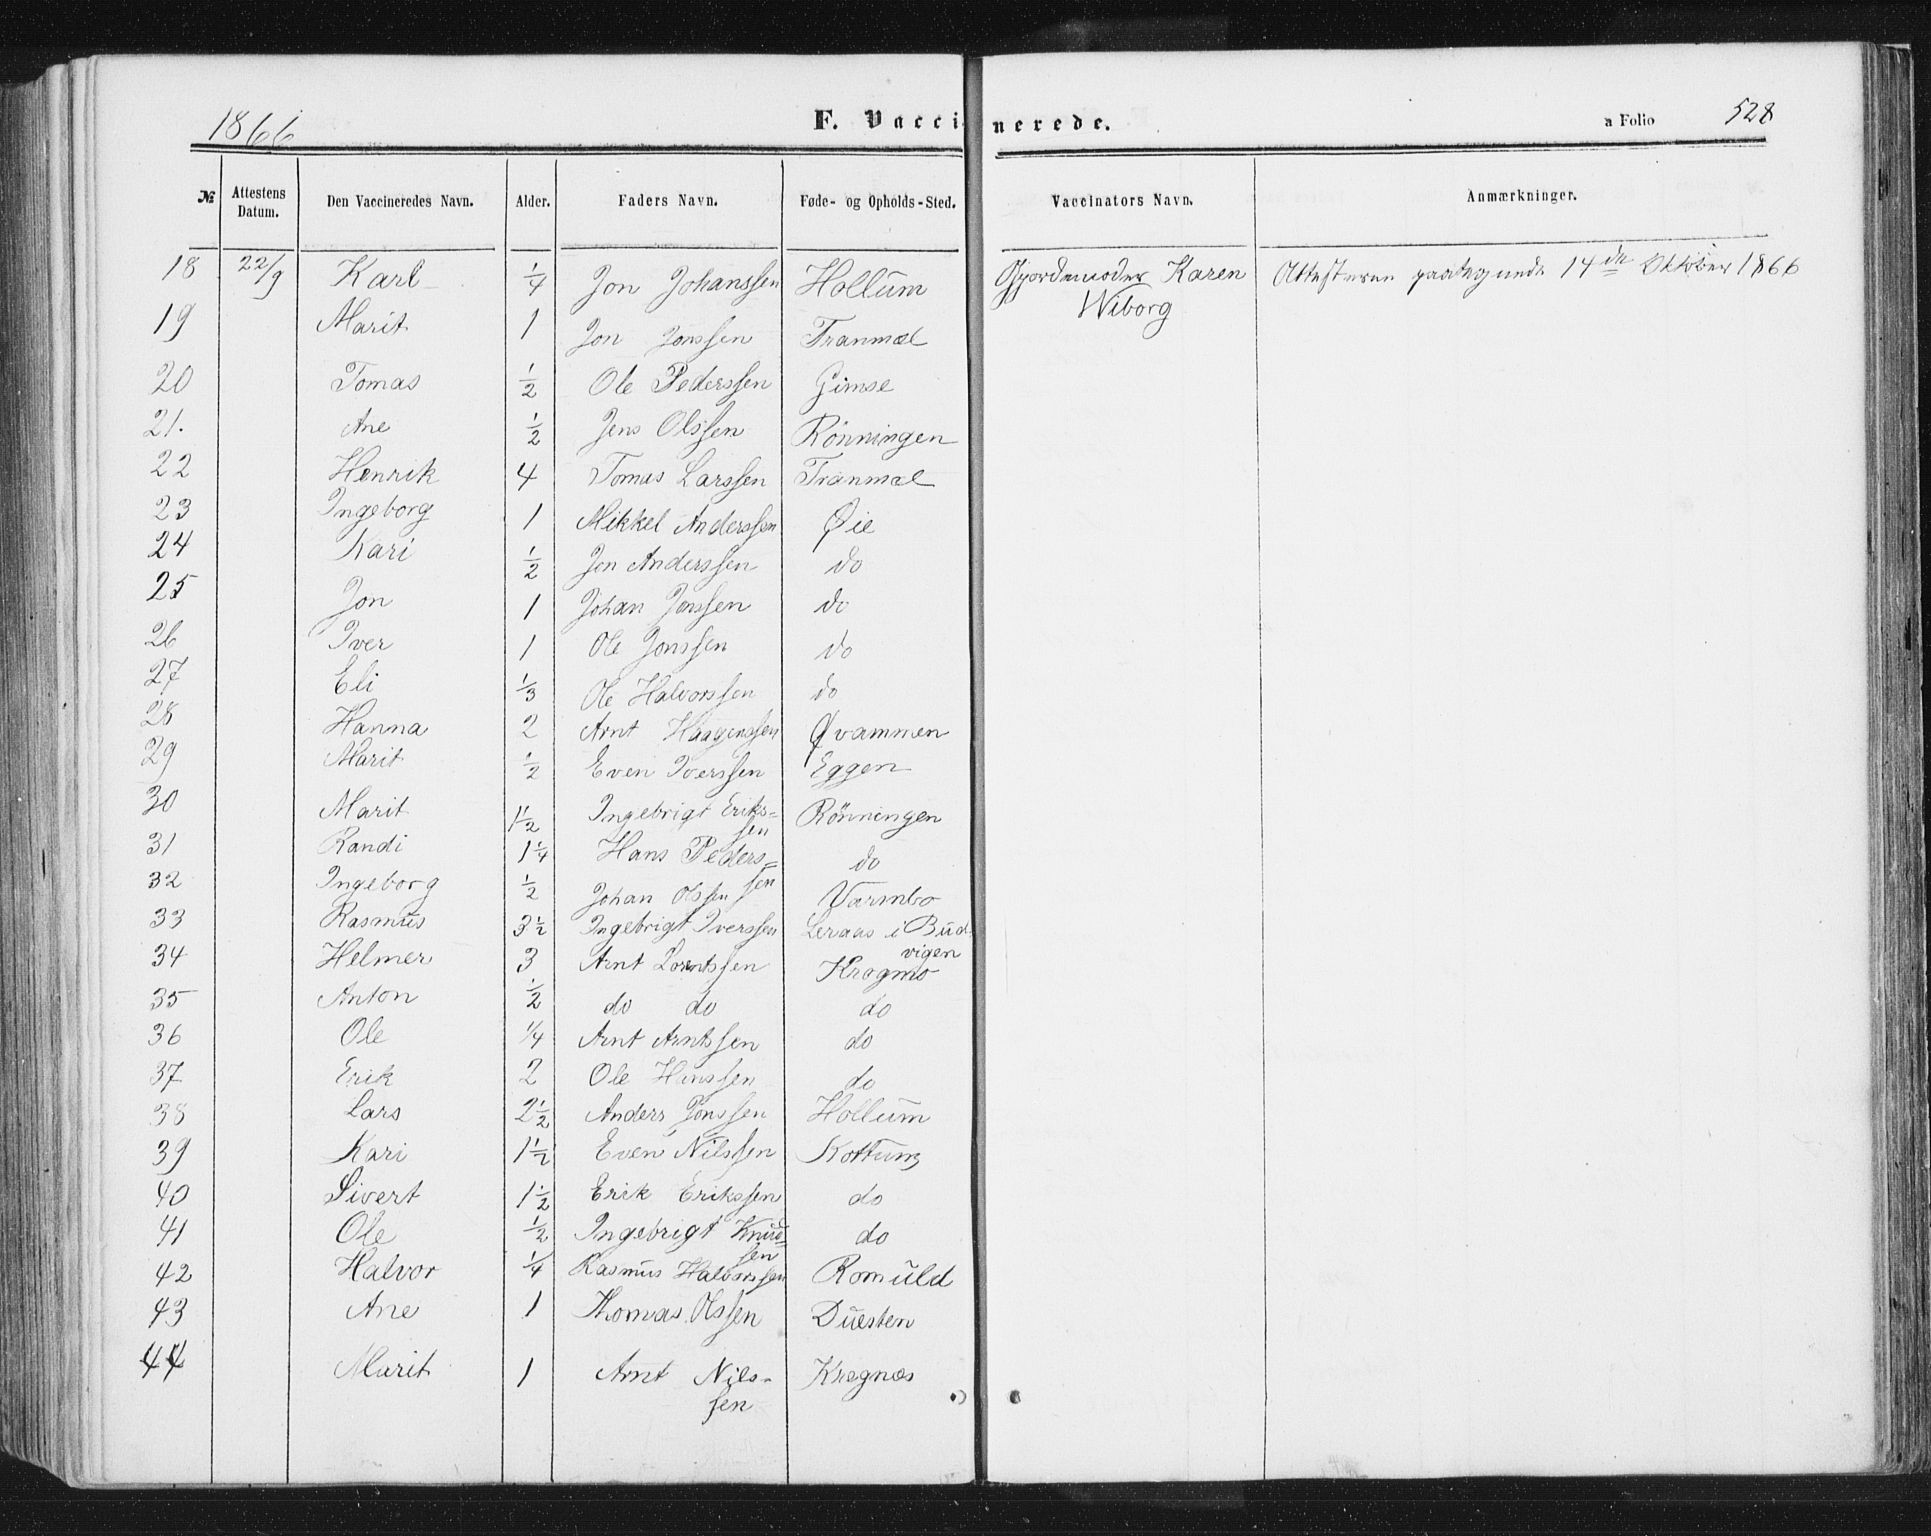 1866 F. Vaccinerede. a Folio 528
№ Attestens Datum. Den Vaccineredes Navn. Alder. Faders Navn. Føde- og Opholds-Sted. Vaccinators Navn. Anmærkninger.
18 22/9 Karl 1/4 Jon Johanssen Hollum Gjordemoder Karen Attesterne paategnede 14de Oktober 1866
Wiborg
19 Marit 1 Jon Jonssen Tranmæl
20 Tomas 1/2 Ole Pederssen Gimse
21. Ane 1/2 Jens Olssen Rönningen
22 Henrik 4 Tomas Larssen Tranmæl
23 Ingeborg 1 Mikkel Anderssen Øie
24 Kari 1/2 Jon Anderssen do
25 Jon 1 Johan Jonssen do
26 Iver 1 Ole Jonssen do
27 Eli 1/3 Ole Halvorssen do
28 Hanna 2 Arnt Haagenssen Qvammen
29 Marit 1/2 Even Iverssen Eggen
30 Marit 1 1/2 Ingebrigt Eriks=
sen Rönningen
31 Randi 1 1/4 Hans Peders=
sen do
32 Ingeborg 1/2 Johan Olssen Varmbo
33 Rasmus 3 1/2 Ingebrigt Iverssen Leraas i Bud
vigen
34 Helmer 3 Arnt Lorntssen Kragmo
35 Anton 1/2 do do do
36 Ole 1/4 Arnt Arntssen do
37 Erik 2 Ole Hanssen do
38 Lars 2 1/2 Anders Jonssen Hollum
39 Kari 1 1/2 Even Nilssen Kottum
40 Sivert 1 1/2 Erik Erikssen do
41 Ole 1/2 Ingebrigt Knud=
sen do
42 Halvor 1/4 Rasmus Halvorssen Romuld
43 Ane 1 Thomas Olssen Duesten
44 Marit 1 Arnt Nils-
sen Kregnæs